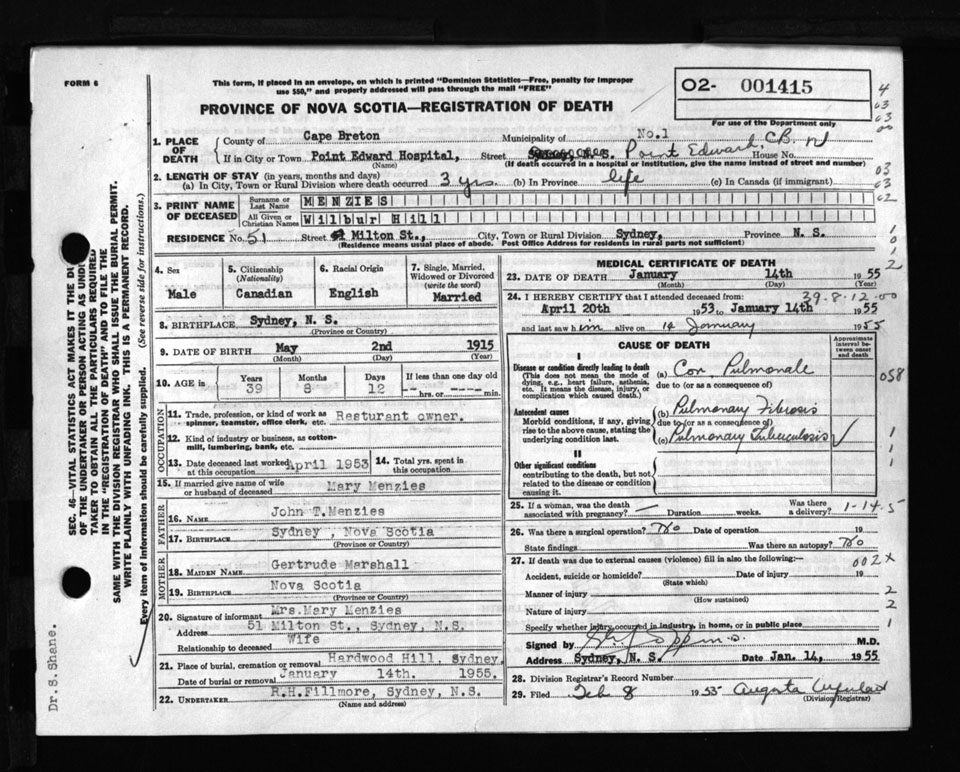 FORM 6
This form, if placed in an envelope, on which is printed "Dominion Statistics—Free, penalty for improper
use $50," and properly addressed will pass through the mail "FREE"
02- 001415
For use of the Department only
PROVINCE OF NOVA SCOTIA—REGISTRATION OF DEATH
4
03
03
00
03
03
02
1
0
1
2
1. PLACE OF DEATH
County of Cape Breton Municipality of No.1
If in City or Town Point Edward Hospital, Street Point Edward, CB. House No.
(Name) (If death occurred in a hospital or institution, give the name instead of street and number)
2. LENGTH OF STAY (in years, months and days)
(a) In City, Town or Rural Division where death occurred 3 yrs. (b) In Province life (c) In Canada (if immigrant)
3. PRINT NAME OF DECEASED
Surname or Last Name MENZIES
All Given or Christian Names Wilbur Hill
RESIDENCE No. 51 Street Milton St., City, Town or Rural Division Sydney, Province N. S.
(Residence means usual place of abode. Post Office Address for residents in rural parts not sufficient)
4. Sex Male
5. Citizenship (Nationality) Canadian
6. Racial Origin English
7. Single, Married, Widowed or Divorced (write the word) Married
8. BIRTHPLACE Sydney, N. S.
(Province or Country)
9. DATE OF BIRTH May 2nd 1915
(Month) (Day) (Year)
10. AGE in Years 39 Months 8 Days 12 If less than one day old hrs. or min.
OCCUPATION
11. Trade, profession, or kind of work as spinner, teamster, office clerk, etc. Resturant owner.
12. Kind of industry or business, as cotton-mill, lumbering, bank, etc.
13. Date deceased last worked at this occupation April 1953
14. Total yrs. spent in this occupation
15. If married give name of wife or husband of deceased Mary Menzies
FATHER
16. NAME John T.Menzies
17. BIRTHPLACE Sydney , Nova Scotia
(Province or Country)
MOTHER
18. MAIDEN NAME Gertrude Marshall
19. BIRTHPLACE Nova Scotia
(Province or Country)
20. Signature of informant Mrs.Mary Menzies
Address 51 Milton St., Sydney, N.S.
Relationship to deceased Wife
21. Place of burial, cremation or removal Hardwood Hill, Sydney.
Date of burial or removal January 14th. 1955.
22. UNDERTAKER R.H.Fillmore, Sydney, N.S.
(Name and address)
MEDICAL CERTIFICATE OF DEATH
23. DATE OF DEATH January 14th 1955
(Month) (Day) (Year)
39-8-12-00
24. I HEREBY CERTIFY that I attended deceased from:
April 20th 1953 to January 14th 1955
and last saw him alive on 14 January 1955
CAUSE OF DEATH
Approximate interval between onset and death
I
Disease or condition directly leading to death
(This does not mean the mode of dying, e.g., heart failure, asthenia, etc. It means the disease, injury, or complication which caused death.)
(a) Cor Pulmonale
due to (or as a consequence of)
058
Antecedent causes
Morbid conditions, if any, giving rise to the above cause, stating the underlying condition last.
(b) Pulmonary Fibrosis
due to (or as a consequence of)
(c) Pulmonary Tuberculosis
1
1
II
Other significant conditions
contributing to the death, but not related to the disease or condition causing it.
25. If a woman, was the death associated with pregnancy? Duration weeks. Was there a delivery?
1-14-5
26. Was there a surgical operation? No Date of operation 19
State findings Was there an autopsy? No
27. If death was due to external causes (violence) fill in also the following:—
002X
Accident, suicide or homicide? Date of injury 19
(State which)
Manner of injury 2
(How sustained)
Nature of injury 2
Specify whether injury occurred in industry, in home, or in public place 1
Signed by M.D.
Address Sydney, N. S. Date Jan. 14, 1955
28. Division Registrar's Record Number
29. Filed Feb 8 1955 Augusta
(Division Registrar)
SEC. 46—VITAL STATISTICS ACT MAKES IT THE DU
OF THE UNDERTAKER OR PERSON ACTING AS UNDE
TAKER TO OBTAIN ALL THE PARTICULARS REQUIRED
IN THE "REGISTRATION OF DEATH" AND TO FILE THE
SAME WITH THE DIVISION REGISTRAR WHO SHALL ISSUE THE BURIAL PERMIT.
WRITE PLAINLY WITH UNFADING INK. THIS IS A PERMANENT RECORD.
Every item of information should be carefully supplied. (See reverse side for instructions.)
Dr.S.Shane.